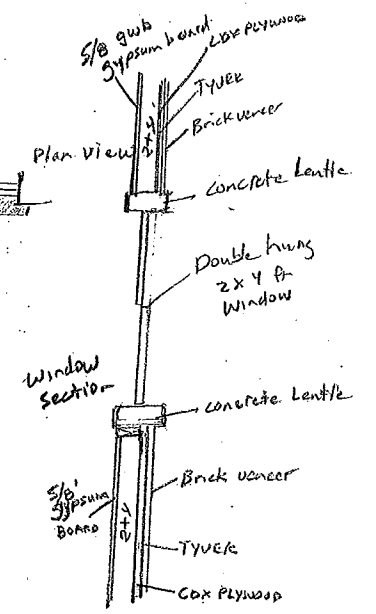 5/8 gwb
gypsum board
CDX PLYWOOD
TYVEK
Brick veneer
2x4'
Plan View
Concrete Lentle
Double hung
2x4 ft
Window
Window
Section
Concrete Lentle
Brick veneer
5/8'
gypsum
BOARD
2x4
TYVEK
CDX PLYWOOD